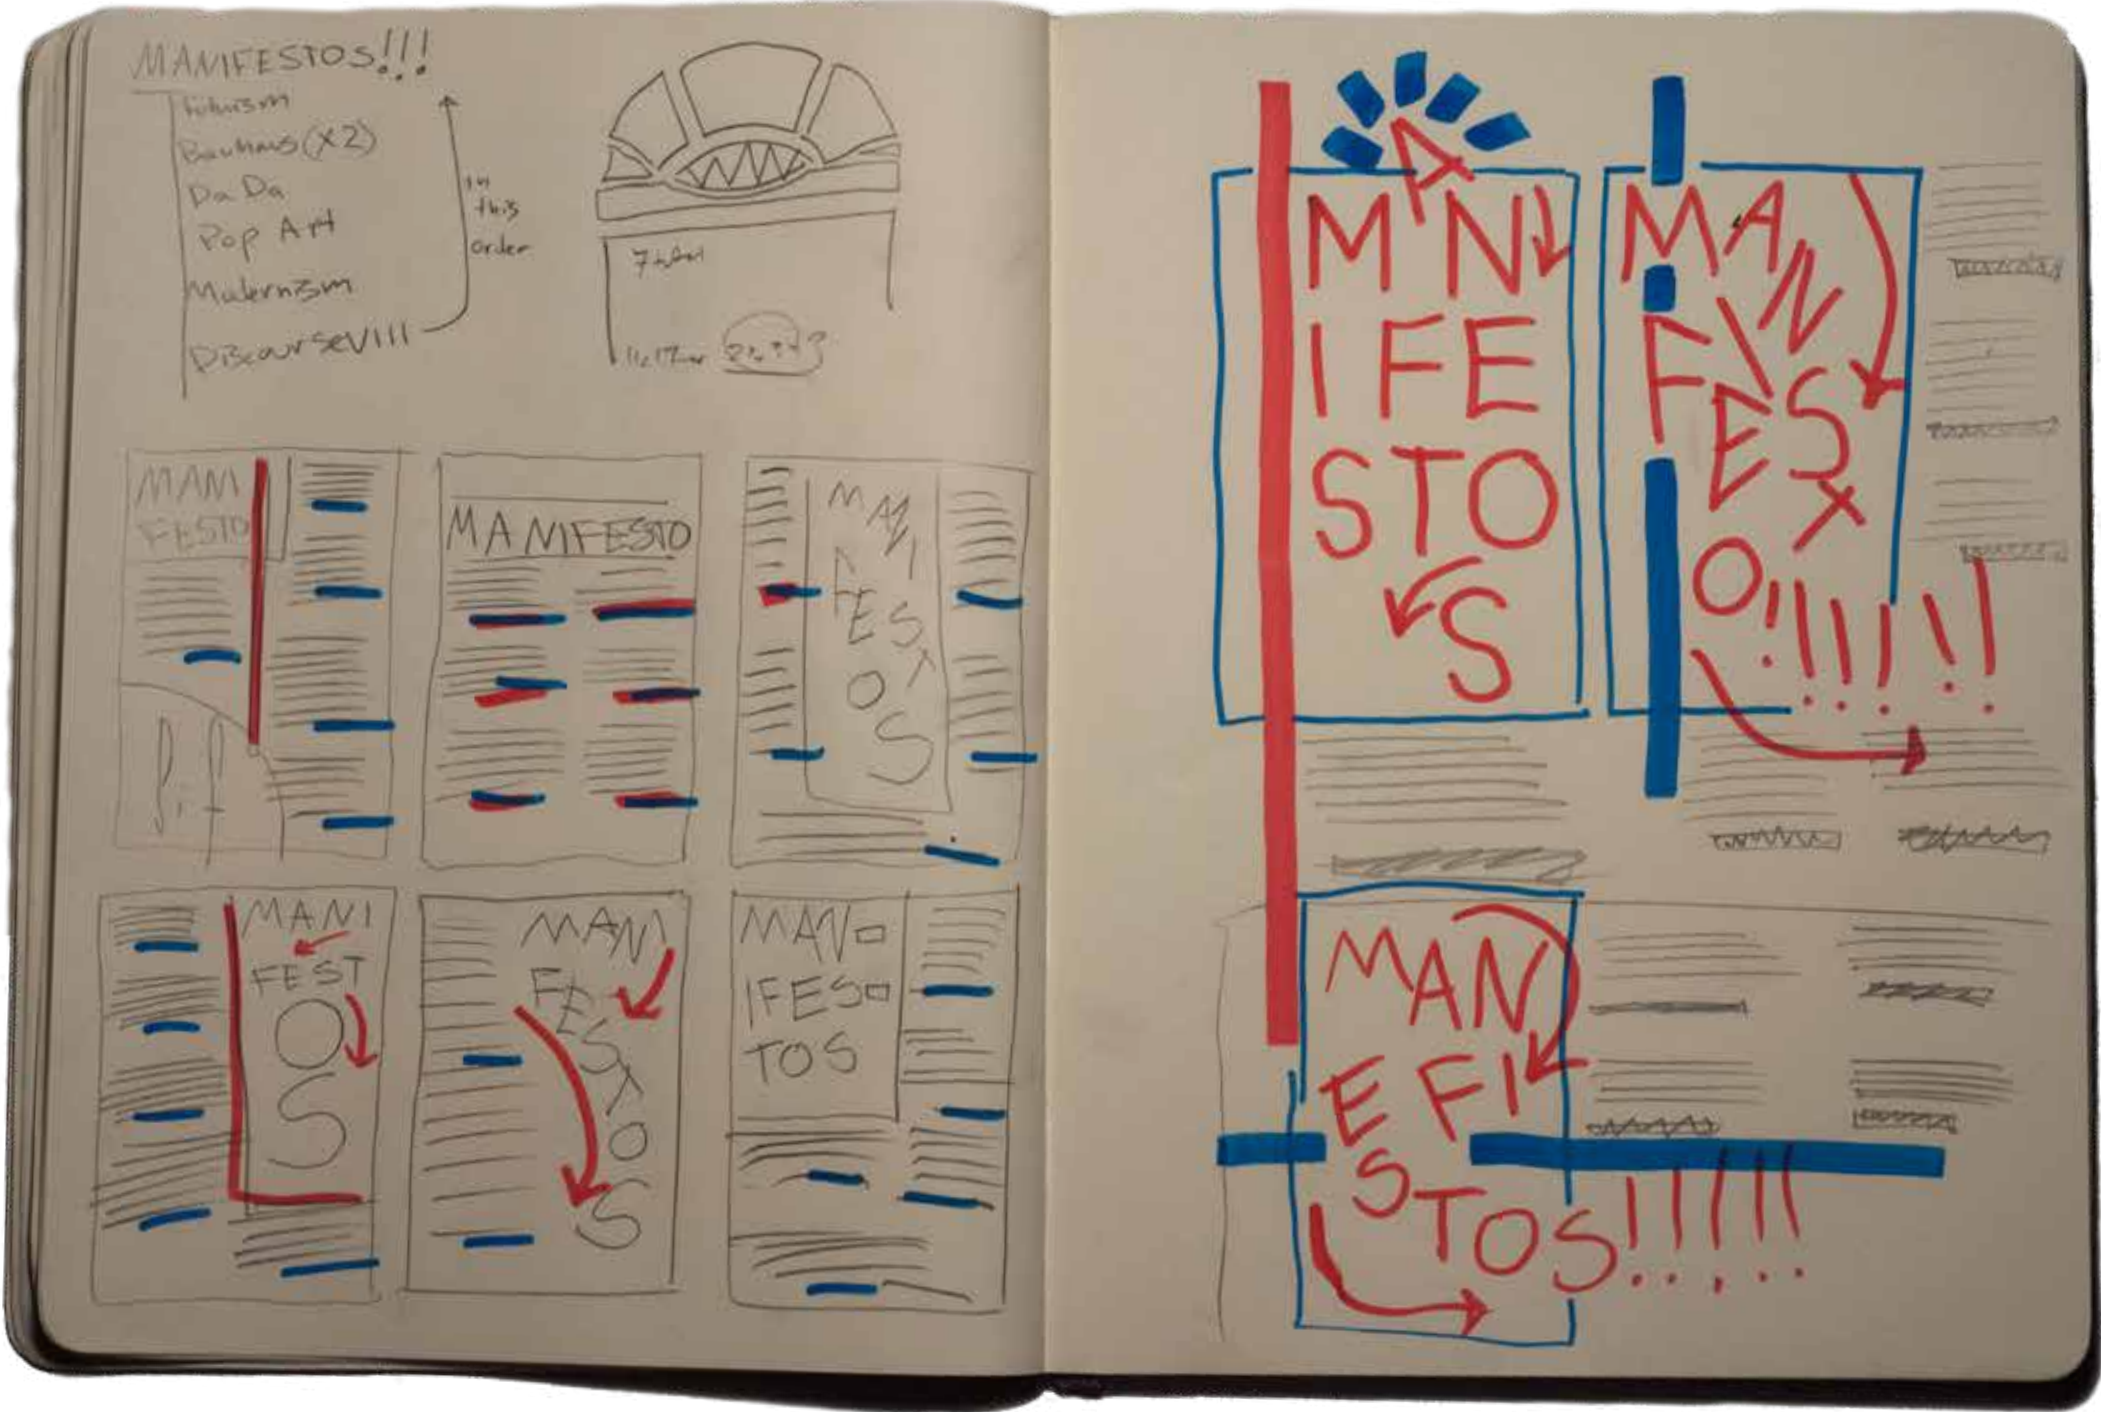 MANIFESTOS!!!
futurism
Bauhaus (x2)
DaDa
Pop Art
Modernism
Discourse VIII
in
this
order
7 total
11x17
MANI
FESTO
MANIFESTO
MANI
FES
T
O
S
MANI
FEST
O
S
MANI
FES
T
O
S
MAN
IFES
TOS
A
M N
I FE
STO
S
MAN
FI
ES
T
O!!!!!!
MAN
E FI
STOS!!!!!